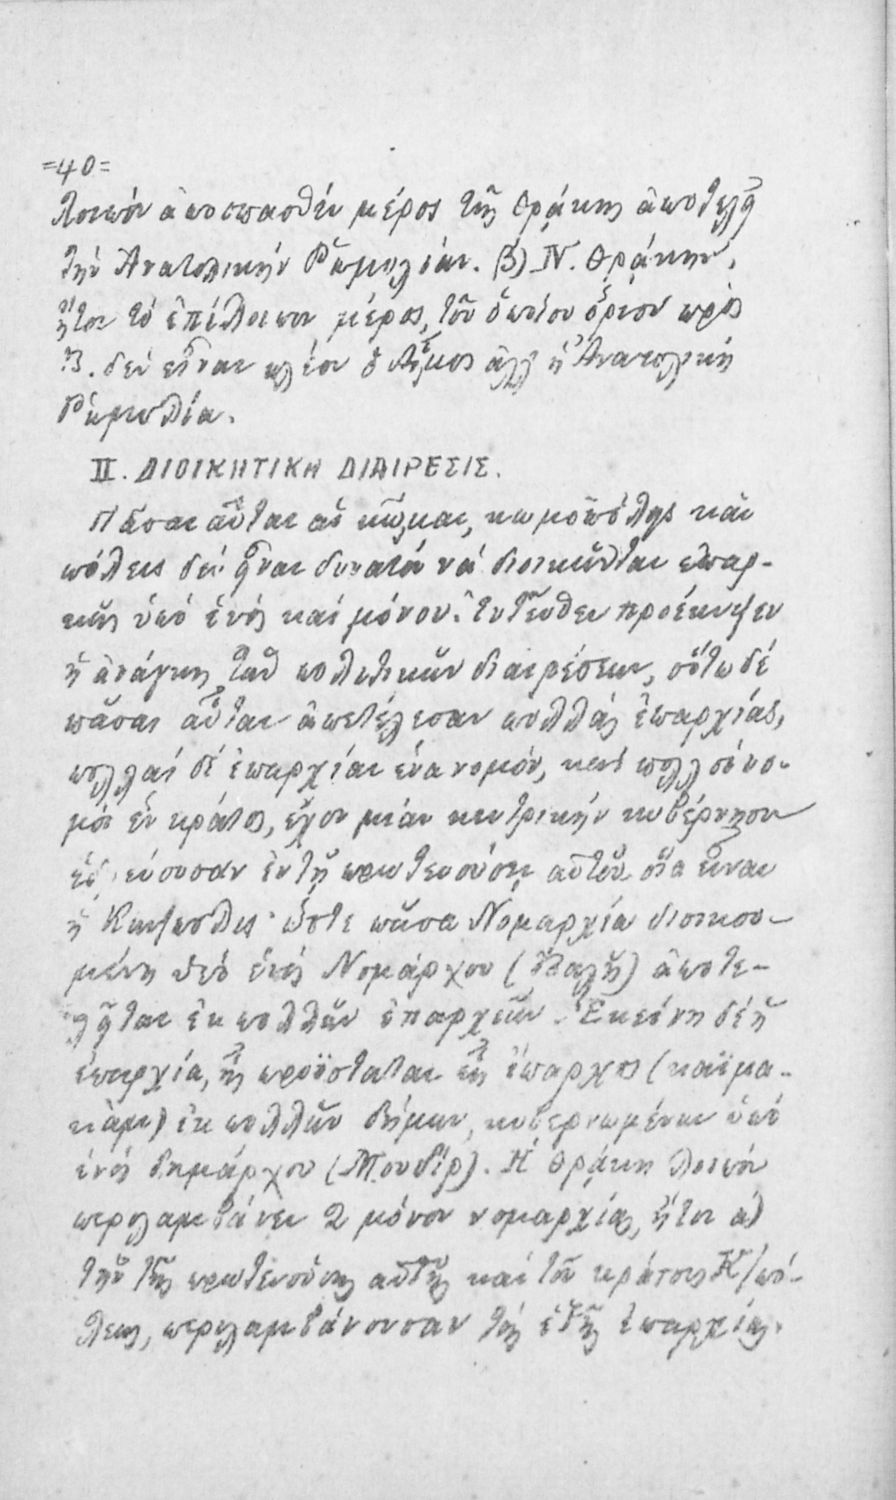 =40=
λοιπόν ἀποσπασθέν μέρος τῆς Θράκης ἀποτελεῖ
τήν Ἀνατολικήν Ῥωμυλίαν. β) Ν. Θράκην,
ἤτοι τό ἐπίλοιπον μέρος, τοῦ ὁποίου ὅριον πρός
Β. δέν εἶναι πλέον ὁ Αἷμος ἀλλ' ἡ Ἀνατολική
Ῥωμυλία.
ΙΙ. ΔΙΟΙΚΗΤΙΚΗ ΔΙΑΙΡΕΣΙΣ.
Πᾶσαι αὗται αἱ κῶμαι, κωμοπόλεις καί
πόλεις δέν εἶναι δυνατόν νά διοικῶνται ἐπαρ-
κῶς ὑπό ἑνός καί μόνου. Ἐντεῦθεν προέκυψεν
ἡ ἀνάγκη τῶν πολιτικῶν διαιρέσεων, οὕτω δέ
πᾶσαι αὗται ἀπετέλεσαν πολλάς ἐπαρχίας,
πολλαί δέ ἐπαρχίαι ἕνα νομόν, καί πολλοί νο-
μοί ἕν κράτος, ἔχον μίαν κεντρικήν κυβέρνησιν
ἑδρεύουσαν ἐν τῇ πρωτευούσῃ αὐτοῦ οἵα εἶναι
ἡ Κων/πολις· ὥστε πᾶσα Νομαρχία διοικου-
μένη ὑπό ἑνός Νομάρχου (Βαλῆ) ἀποτε-
λεῖται ἐκ πολλῶν ἐπαρχιῶν. Ἐκείνη δέ ἡ
ἐπαρχία, ἧς προΐσταται εἷς ἔπαρχος (καϊμα-
κάμ) ἐκ πολλῶν δήμων, κυβερνωμένων ὑπό
ἑνός δημάρχου (Μουδίρ). Ἡ Θράκη λοιπόν
περιλαμβάνει 2 μόνον νομαρχίας, ἤτοι α)
τήν τῆς πρωτευούσης αὐτῆς καί τοῦ κράτους Κ/πό-
λεως, περιλαμβάνουσαν τάς ἑξῆς ἐπαρχίας.